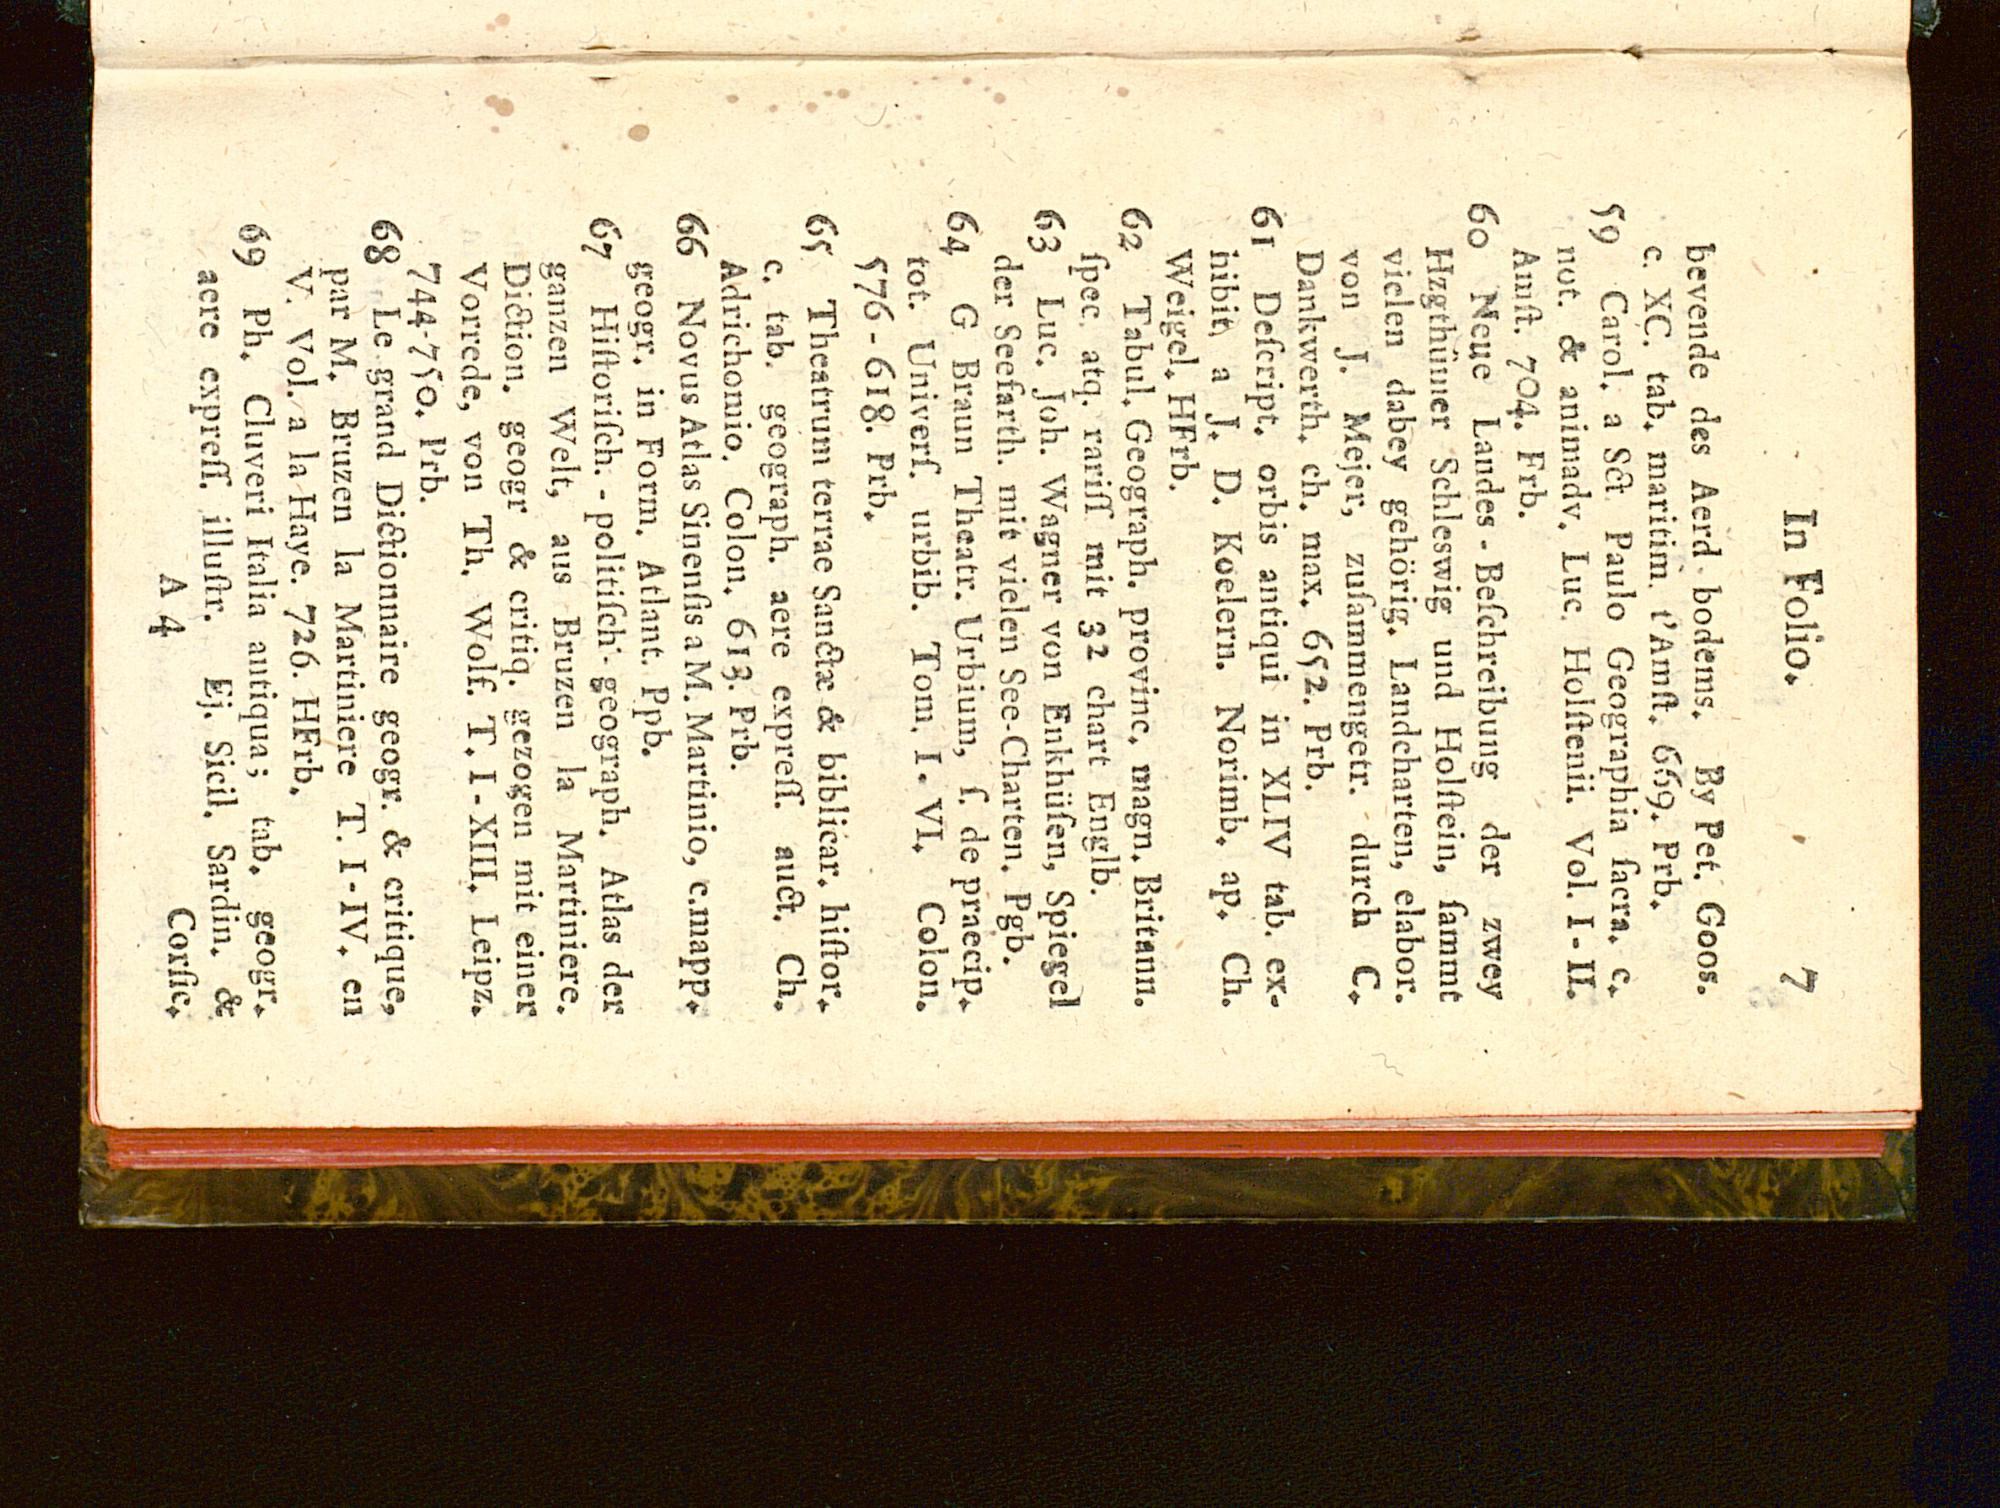 In Folio. 7
bevende des Aerd bodems. By Pet. Goos.
c. XC. tab. maritim. t'Amſt. 669. Prb.
59 Carol. a Sct Paulo Geographia ſacra. c.
not. & animadv. Luc. Holſtenii. Vol. I-II.
Amſt. 704. Frb.
60 Neue Landes-Beſchreibung der zwey
Hzgthümer Schleswig und Holſtein, ſammt
vielen dabey gehörig. Landcharten, elabor.
von J. Mejer, zuſammengetr. durch C.
Dankwerth. ch. max. 652. Prb.
61 Deſcript. orbis antiqui in XLIV tab. ex-
hibit, a J. D. Koelern. Norimb. ap. Ch.
Weigel. HFrb.
62 Tabul. Geograph. provinc. magn. Britann.
ſpec. atq. rariſſ mit 32 chart Englb.
63 Luc. Joh. Wagner von Enkhüſen, Spiegel
der Seefarth. mit vielen See-Charten. Pgb.
64 G Braun Theatr. Urbium, ſ. de praecip.
tot. Univerſ. urbib. Tom. I-VI. Colon.
576-618. Prb.
65 Theatrum terrae Sanctæ & biblicar. hiſtor.
c. tab. geograph. aere expreſſ. auct. Ch.
Adrichomio. Colon. 613. Prb.
66 Novus Atlas Sinenſis a M. Martinio, c.mapp.
geogr. in Form. Atlant. Ppb.
67 Hiſtoriſch-politiſch-geograph. Atlas der
ganzen Welt, aus Bruzen la Martiniere.
Diction. geogr & critiq. gezogen mit einer
Vorrede, von Th. Wolf. T. I-XIII. Leipz.
744-750. Prb.
68 Le grand Dictionnaire geogr. & critique,
par M. Bruzen la Martiniere T. I-IV. en
V. Vol. a la Haye. 726. HFrb.
69 Ph. Cluveri Italia antiqua; tab. geogr.
aere expreſſ. illuſtr. Ej. Sicil. Sardin. &
A 4 Corſic.